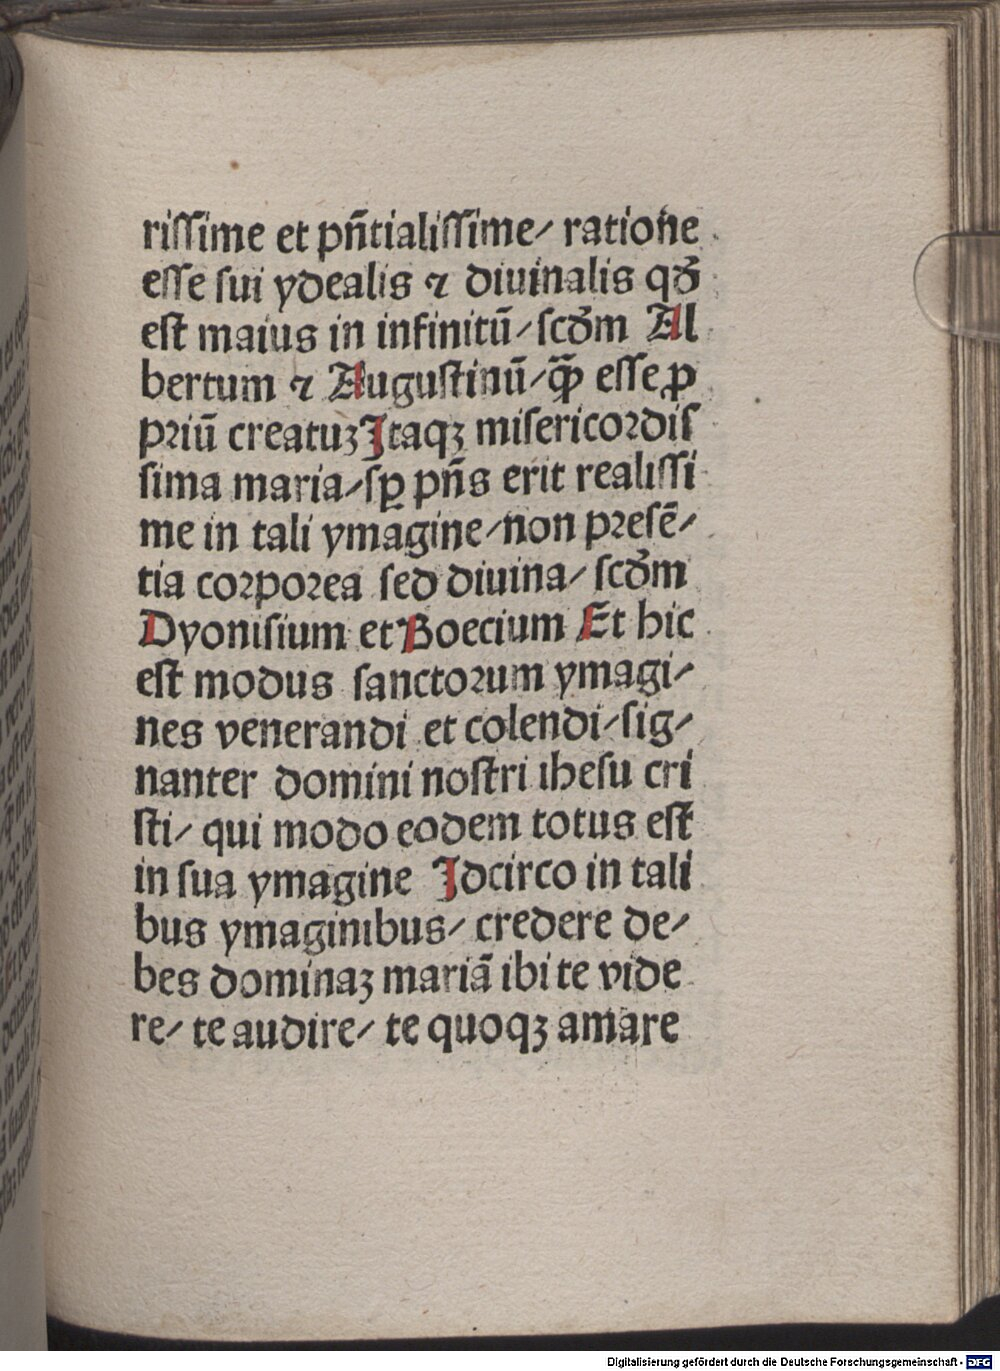 riſſime et pñtialiſſime/ ratione
eſſe ſui ydealis ⁊ diuinalis qď
eſt maius in infinitū/ſcďm Al
bertum ⁊ Auguſtinū/qꝙ̄ eſſe ꝓ
priū creatuꝫ Itaqꝫ miſericordiſ
ſima maria/ſꝑ pñs erit realiſſi
me in tali ymagine/non preſē/
tia corporea ſed diuina/ ſcďm
Dyoniſium et Boecium Et hic
eſt modus ſanctorum ymagi/
nes venerandi et colendi/ſig/
nanter domini noſtri iheſu cri
ſti/ qui modo eodem totus eſt
in ſua ymagine Idcirco in tali
bus ymaginibus/ credere de/
bes dominaꝫ mariā ibi te vide
re/ te audire/ te quoqꝫ amare
Digitalisierung gefördert durch die Deutsche Forschungsgemeinschaft - DFG